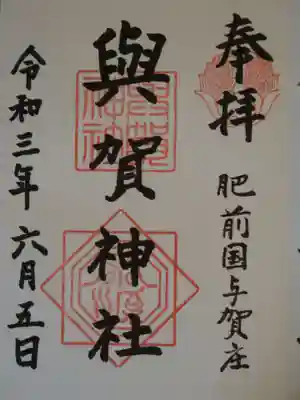 奉拝
肥前国与賀庄
與賀神社
令和三年 六月五日